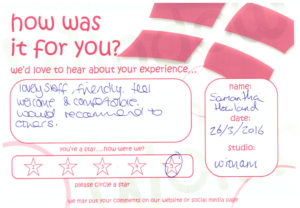 how was
it for you?
we'd love to hear about your experience...
lovely staff, friendly, feel
welcome & comfortable,
would recommend to
others.
name:
Samantha
Howland
date:
26/3/2016
studio:
witham
you're a star....how were we?
please circle a star
we may put your comments on our website or social media page